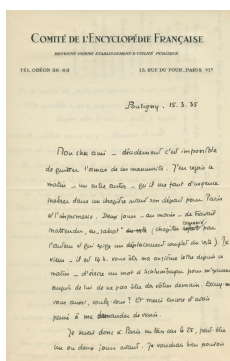 COMITÉ DE L'ENCYCLOPÉDIE FRANÇAISE
RECONNU COMME ÉTABLISSEMENT D'UTILITÉ PUBLIQUE
TÉL. ODÉON 66-62 13, RUE DU FOUR, PARIS VIe
15.3.35
Mon cher ami – décidément c'est impossible
de quitter l'amas de ces manuscrits. J'en reçois ce
matin – un entre autres – qu'il me faut d'urgence
insérer dans un chapitre avant son départ pour Paris
et l'imprimeur. Deux jours – au moins – de travail
inattendu, en "rabiot" (chapitre
par
l'auteur et qui exige un déplacement complet du reste). Je
viens – il est 14 h. vous êtes ma sixième lettre depuis ce
matin – d'écrire un mot à pour m'excuser
auprès de lui de ne pas être des vôtres demain. Excusez-moi
vous aussi, voulez-vous ? Et merci encore d'avoir
pensé à me demander de venir.
Je serai donc à Paris le 20, peut être
un ou deux jours avant. Je voudrais bien pouvoir